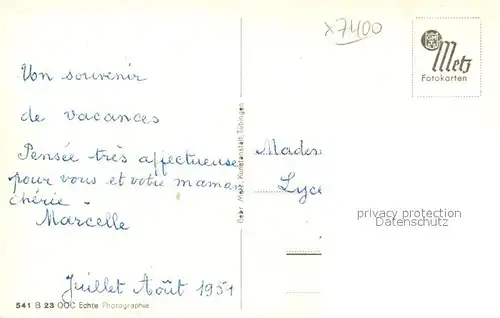 x7400
Metz
Fotokarten
Un souvenir
de vacances
Pensée très affectueuse
pour vous et votre maman
chérie.
Marcelle
Juillet Août 1951
Gebr. Metz, Kunstanstalt, Tübingen
Madem
Lyce
privacy protection
Datenschutz
541 B 23 OOC Echte Photographie